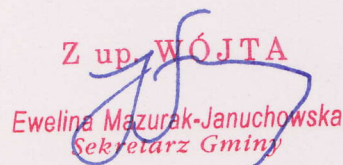 Z up. WÓJTA
Ewelina Mazurak-Januchowska
Sekretarz Gminy